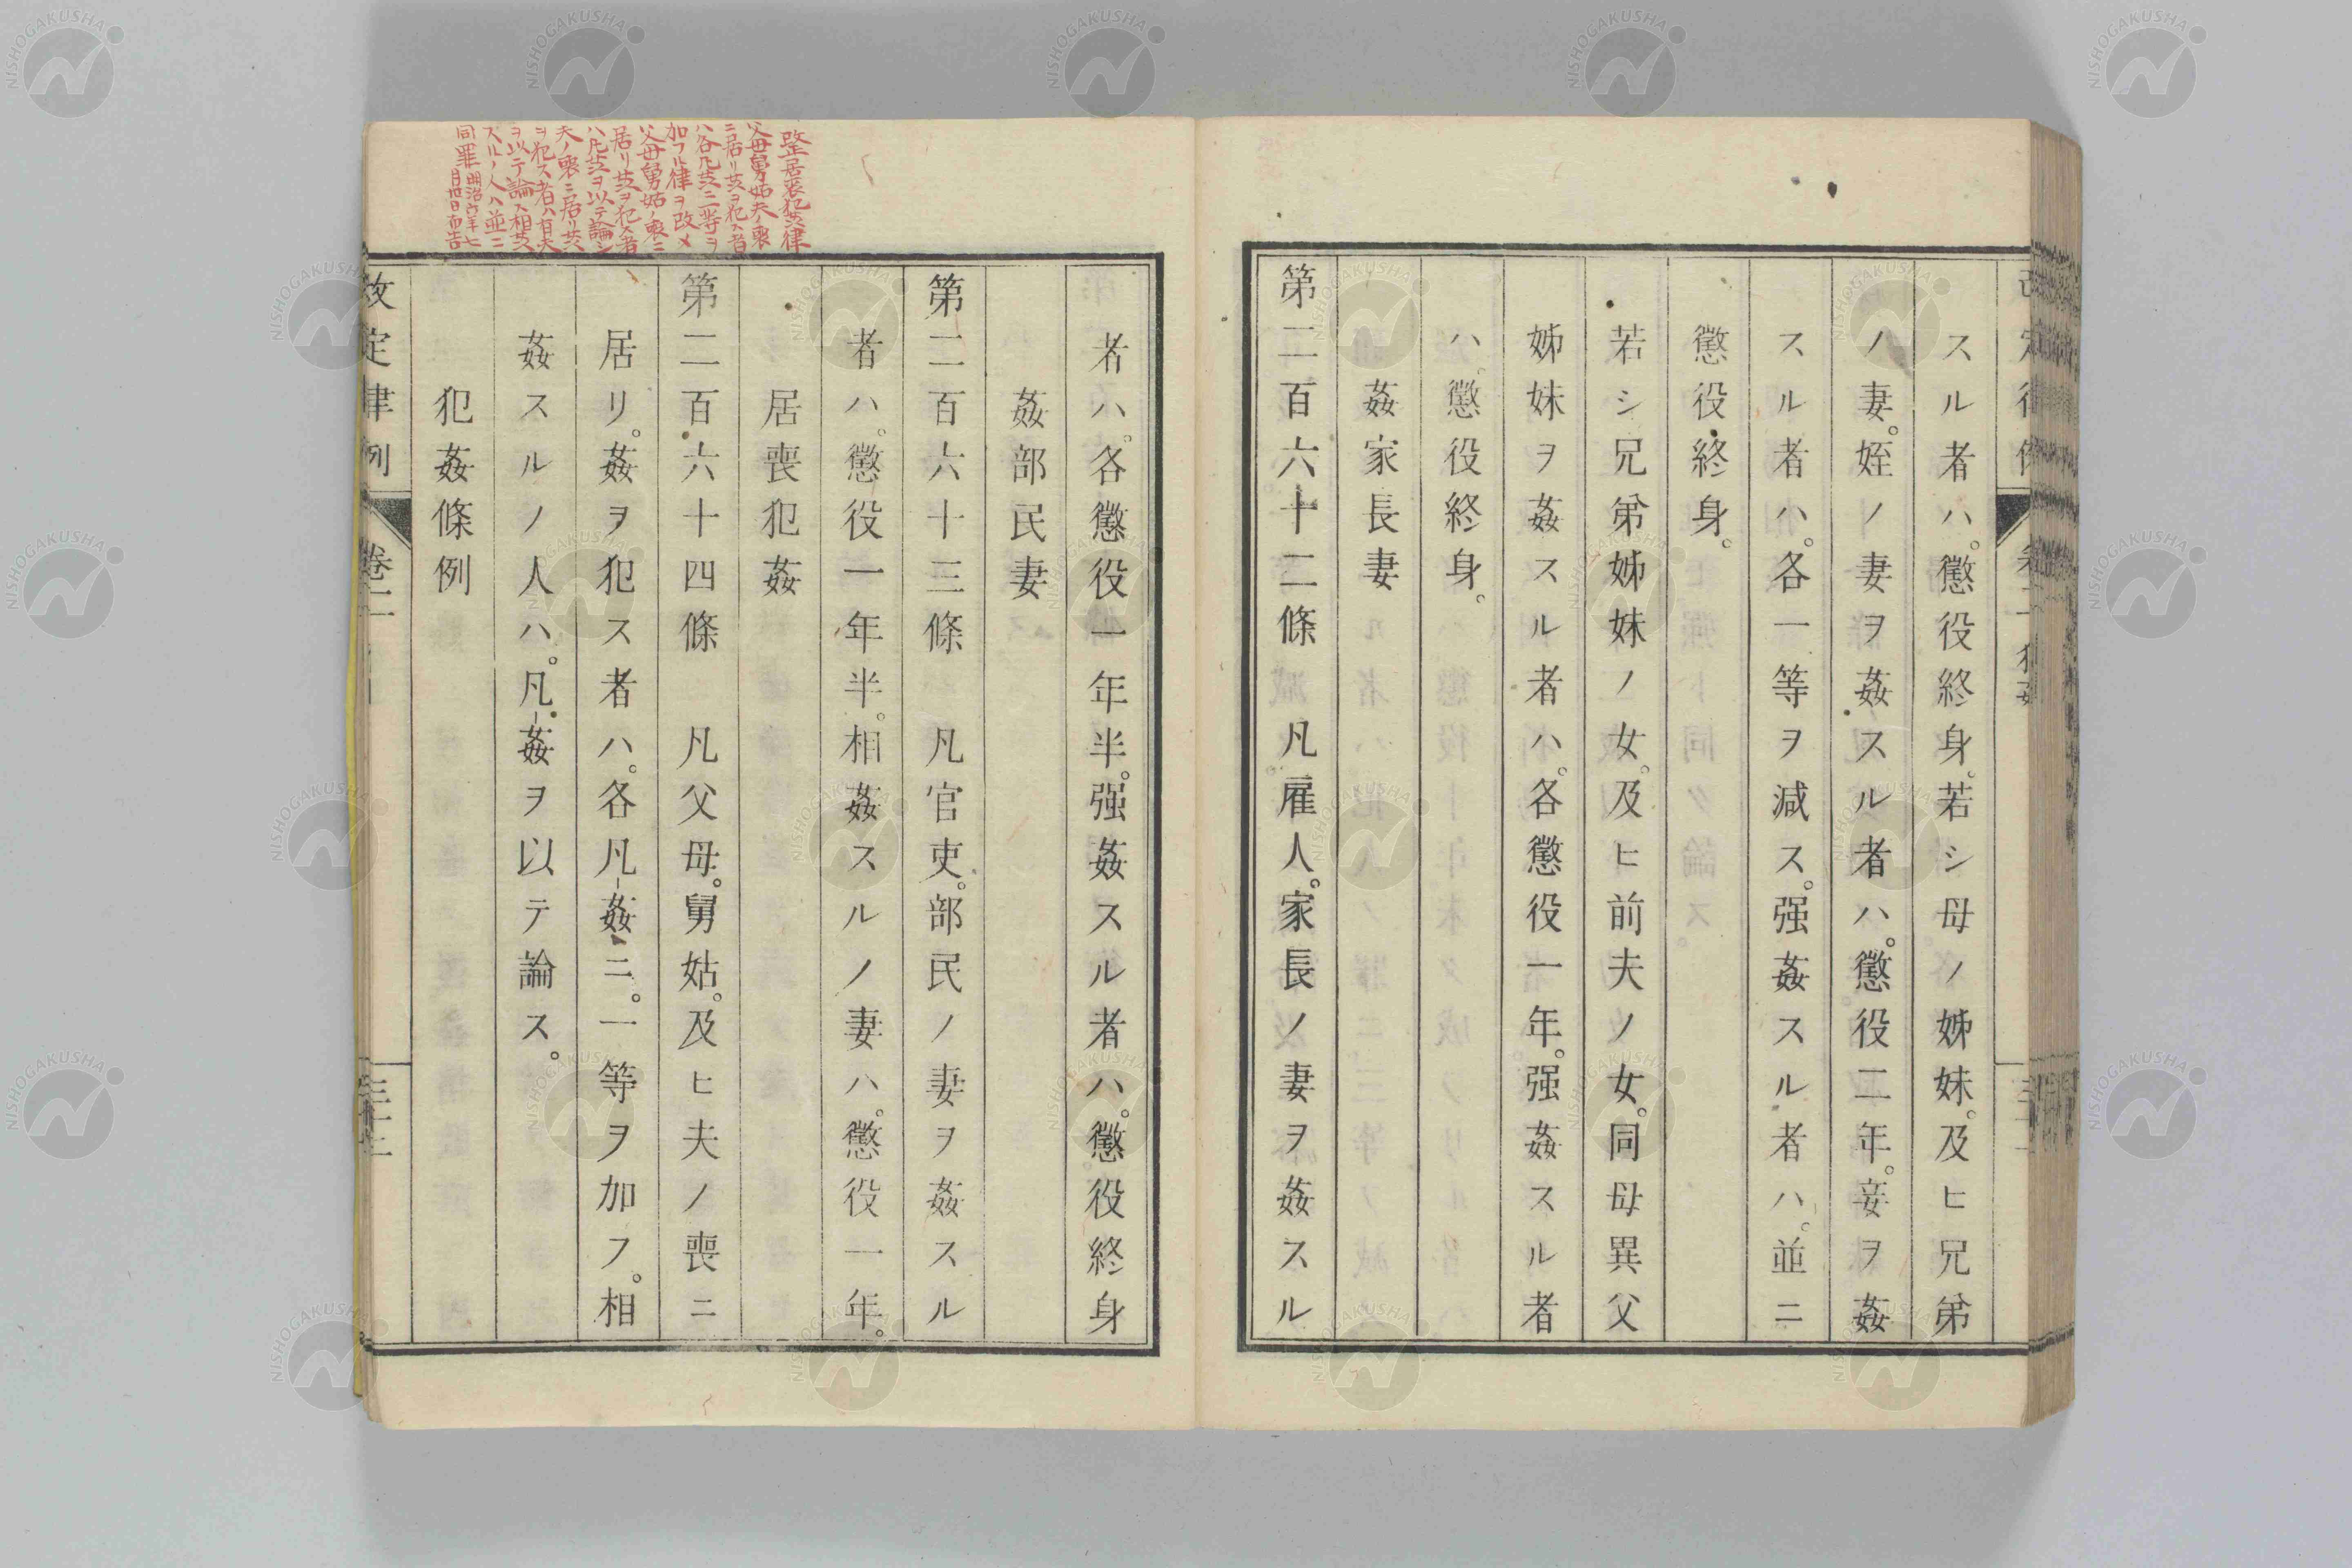 スル者ハ。懲役終身。若シ母ノ姊妹。及ヒ兄弟
ノ妻。姪ノ妻ヲ姦スル者ハ。懲役二年。妾ヲ姦
スル者ハ。各一等ヲ减ス。强姦スル者ハ。並ニ
懲役終身。
若シ兄弟姊妹ノ女。及ヒ前夫ノ女。同母異父
姊妹ヲ姦スル者ハ。各懲役一年。强姦スル者
ハ。懲役終身。
姦家長妻
第二百六十二條 凡雇人。家長ノ妻ヲ姦スル
者ハ。各懲役一年半。强姦スル者ハ。懲役終身
姦部民妻
第二百六十三條 凡官吏。部民ノ妻ヲ姦スル
者ハ。懲役一年半。相姦スルノ妻ハ。懲役一年。
居喪犯姦
第二百六十四條 凡父母。舅姑。及ヒ夫ノ喪ニ
居リ。姦ヲ犯ス者ハ。各凡姦ニ。一等ヲ加フ。相
姦スルノ人ハ。凡姦ヲ以テ論ス。
犯姦條例
改定律例 卷二
居喪犯姦律
父母舅姑夫ノ喪
ニ居リ姦ヲ犯ス者
ハ各凡姦ニ二等ヲ
加フル律ヲ改メ
父母舅姑ノ喪ニ
居リ姦ヲ犯ス者
ハ凡姦ヲ以テ論シ
夫ノ喪ニ居リ姦
ヲ犯ス者ハ有夫
ヲ以テ論ス相姦
スルノ人ハ並ニ
同罪 明治六年七
月廿日布告
NISHOGAKUSHA